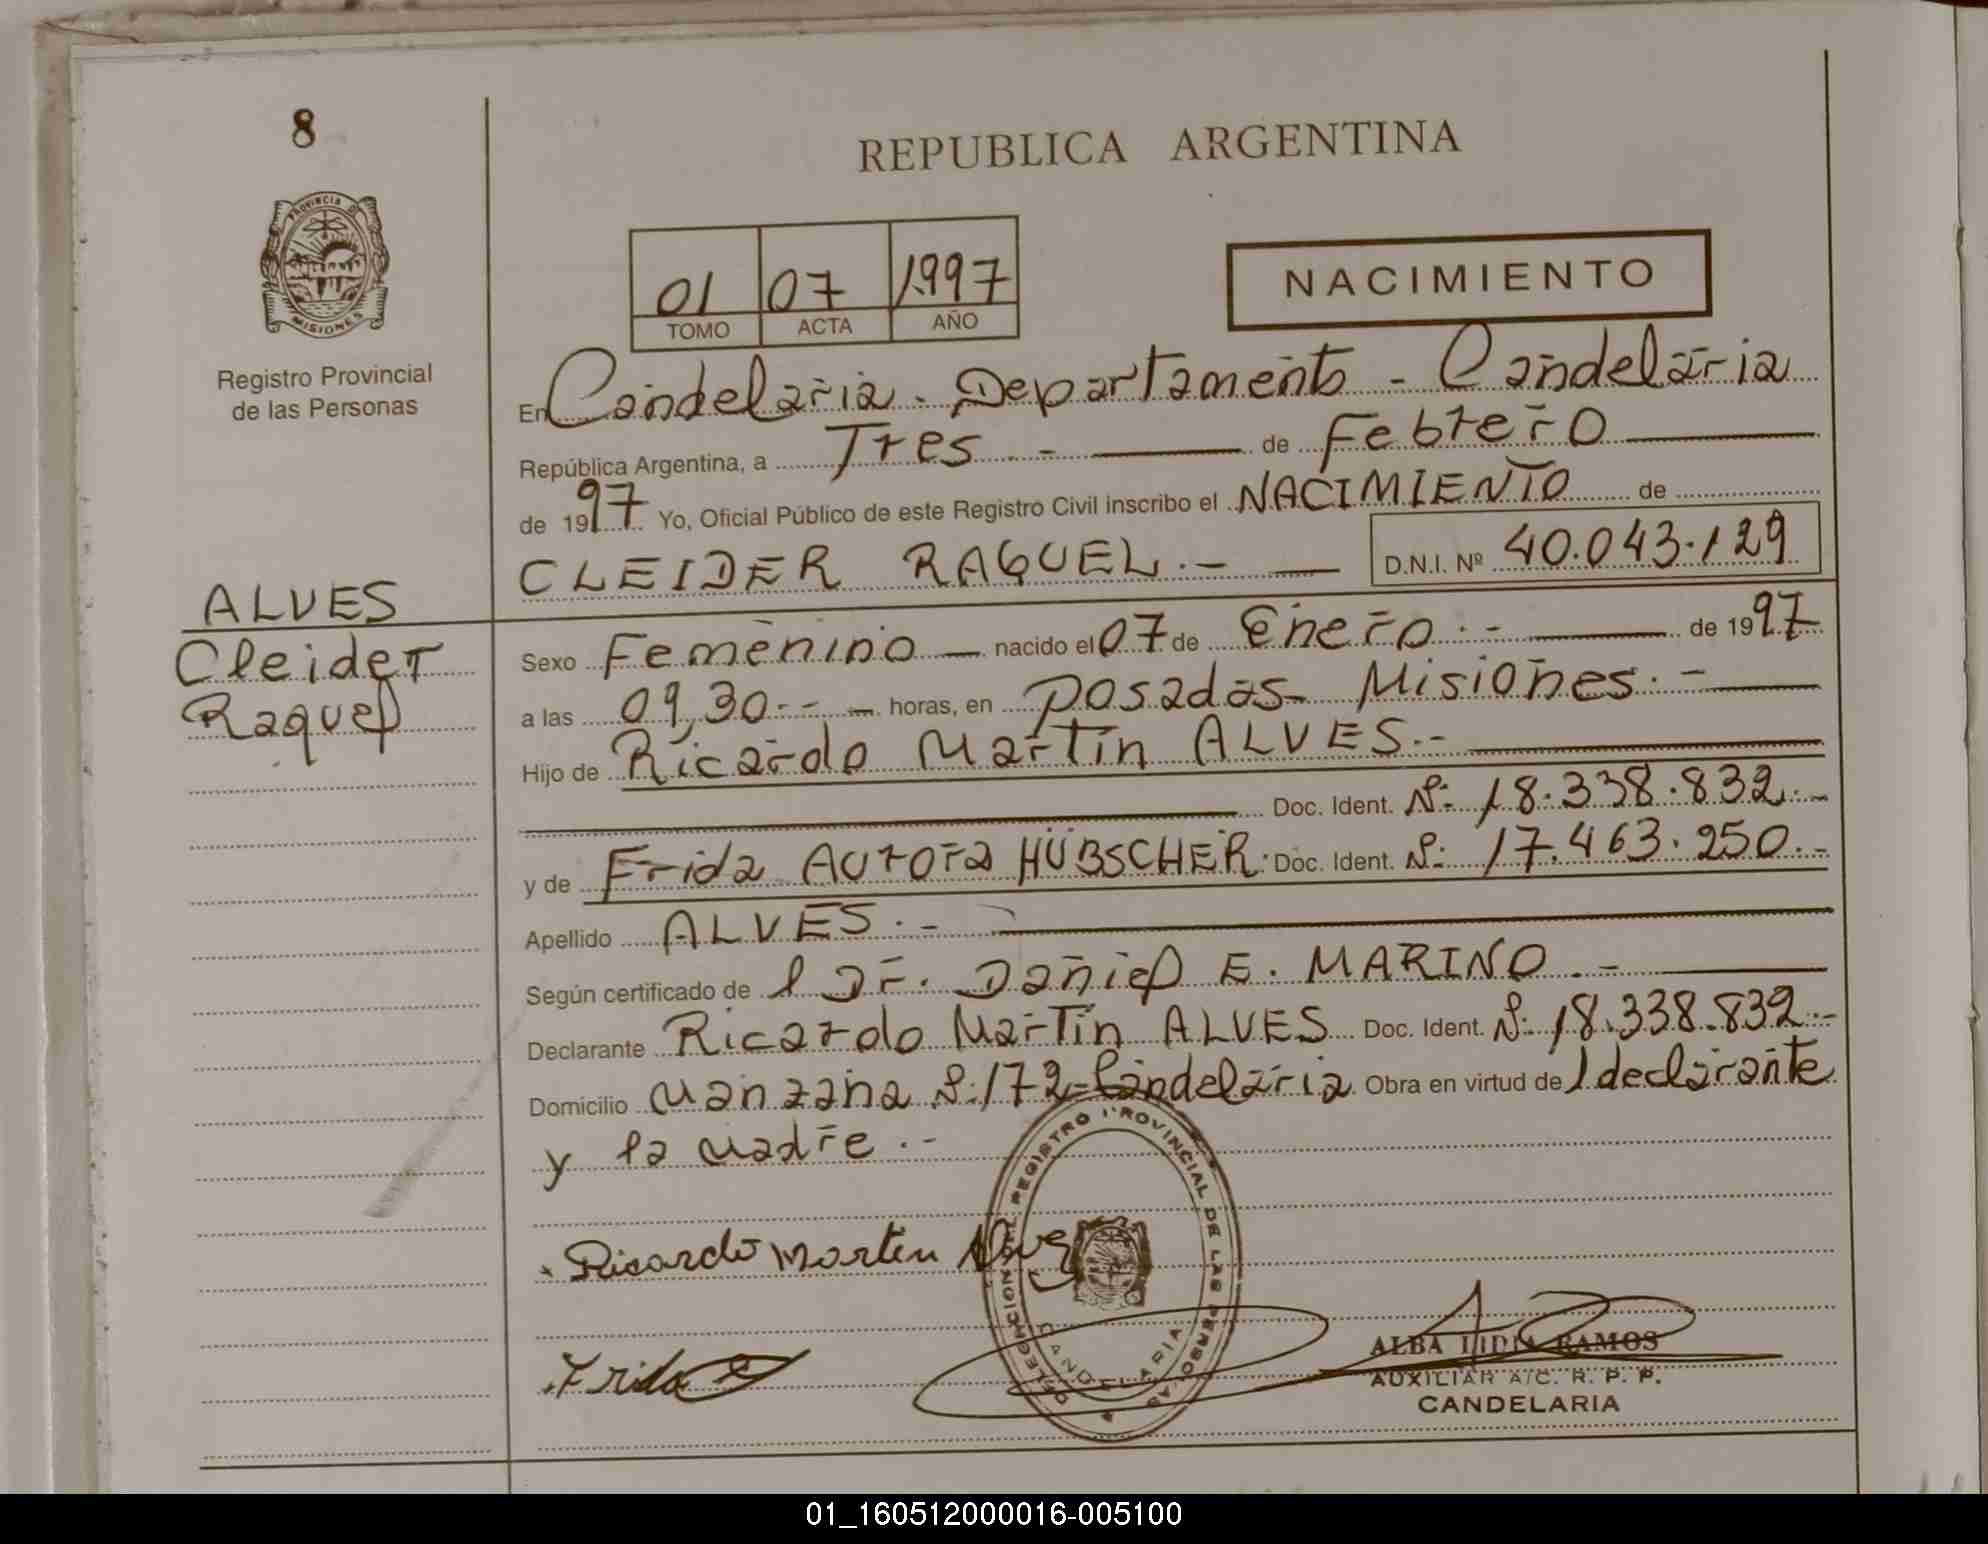 8
REPUBLICA ARGENTINA
PROVINCIA DE
MISIONES
Registro Provincial
de las Personas
01 07 1997
TOMO ACTA AÑO
NACIMIENTO
En Candelaria. Departamento - Candelaria
República Argentina, a Tres - de Febrero
de 1997 Yo, Oficial Público de este Registro Civil inscribo el NACIMIENTO de
CLEIDER RAQUEL.- D.N.I. Nº 40.043.129
ALVES
Cleider
Raquel
Sexo Femenino nacido el 07 de Enero.- de 1997
a las 09,30.- horas, en Posadas- Misiones.-
Hijo de Ricardo Martin ALVES.-
Doc. Ident. Nº 18.338.832.-
y de Frida AUrora HÜBSCHER. Doc. Ident. Nº 17.463.250.-
Apellido ALVES.-
Según certificado de l Dr. Daniel E. MARINO.-
Declarante Ricardo Martin ALVES Doc. Ident. Nº 18.338.832.-
Domicilio Manzana Nº 172-Candelaria Obra en virtud de l declarante
y la Madre.-
Ricardo Martin Alvez
Frida
DELEGACION DEL REGISTRO PROVINCIAL DE LAS PERSONAS
CANDELARIA
ALBA LIDIA RAMOS
AUXILIAR A/C. R. P. P.
CANDELARIA
01_160512000016-005100